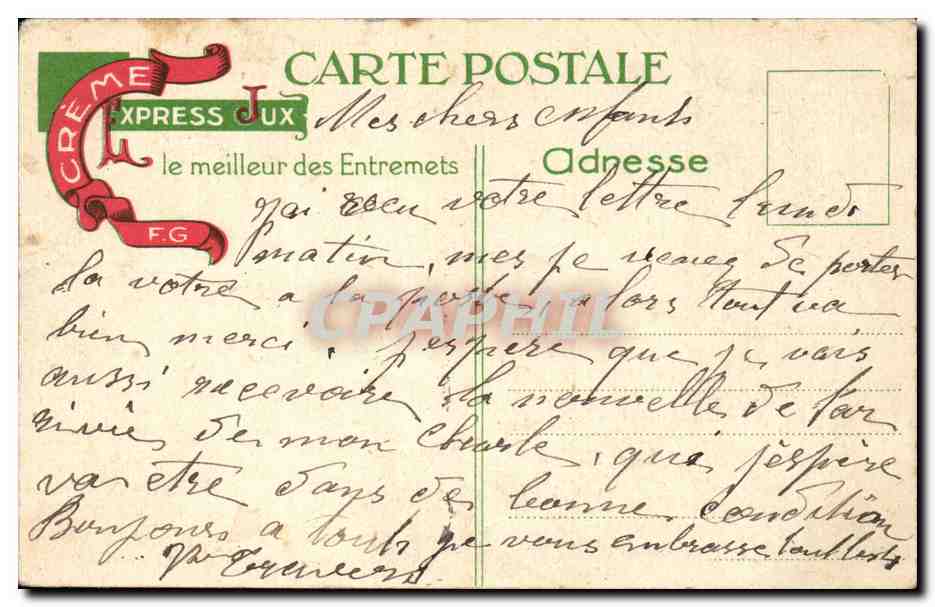 CARTE POSTALE
CRÈME
EXPRESS JUX
F.G
le meilleur des Entremets
Adresse
CPAPHIL
Mes chers enfants
j'ai recu votre lettre lundi
matin, mes je venez de porter
la votre a la poste, alors tout va
bien merci, j'espère que je vais
aussi recevoire la nouvelle de l'ar
rivie de mon Charle, qui j'espère
va etre dans de bonne condition
Bonjour a touts je vous embrasse tout